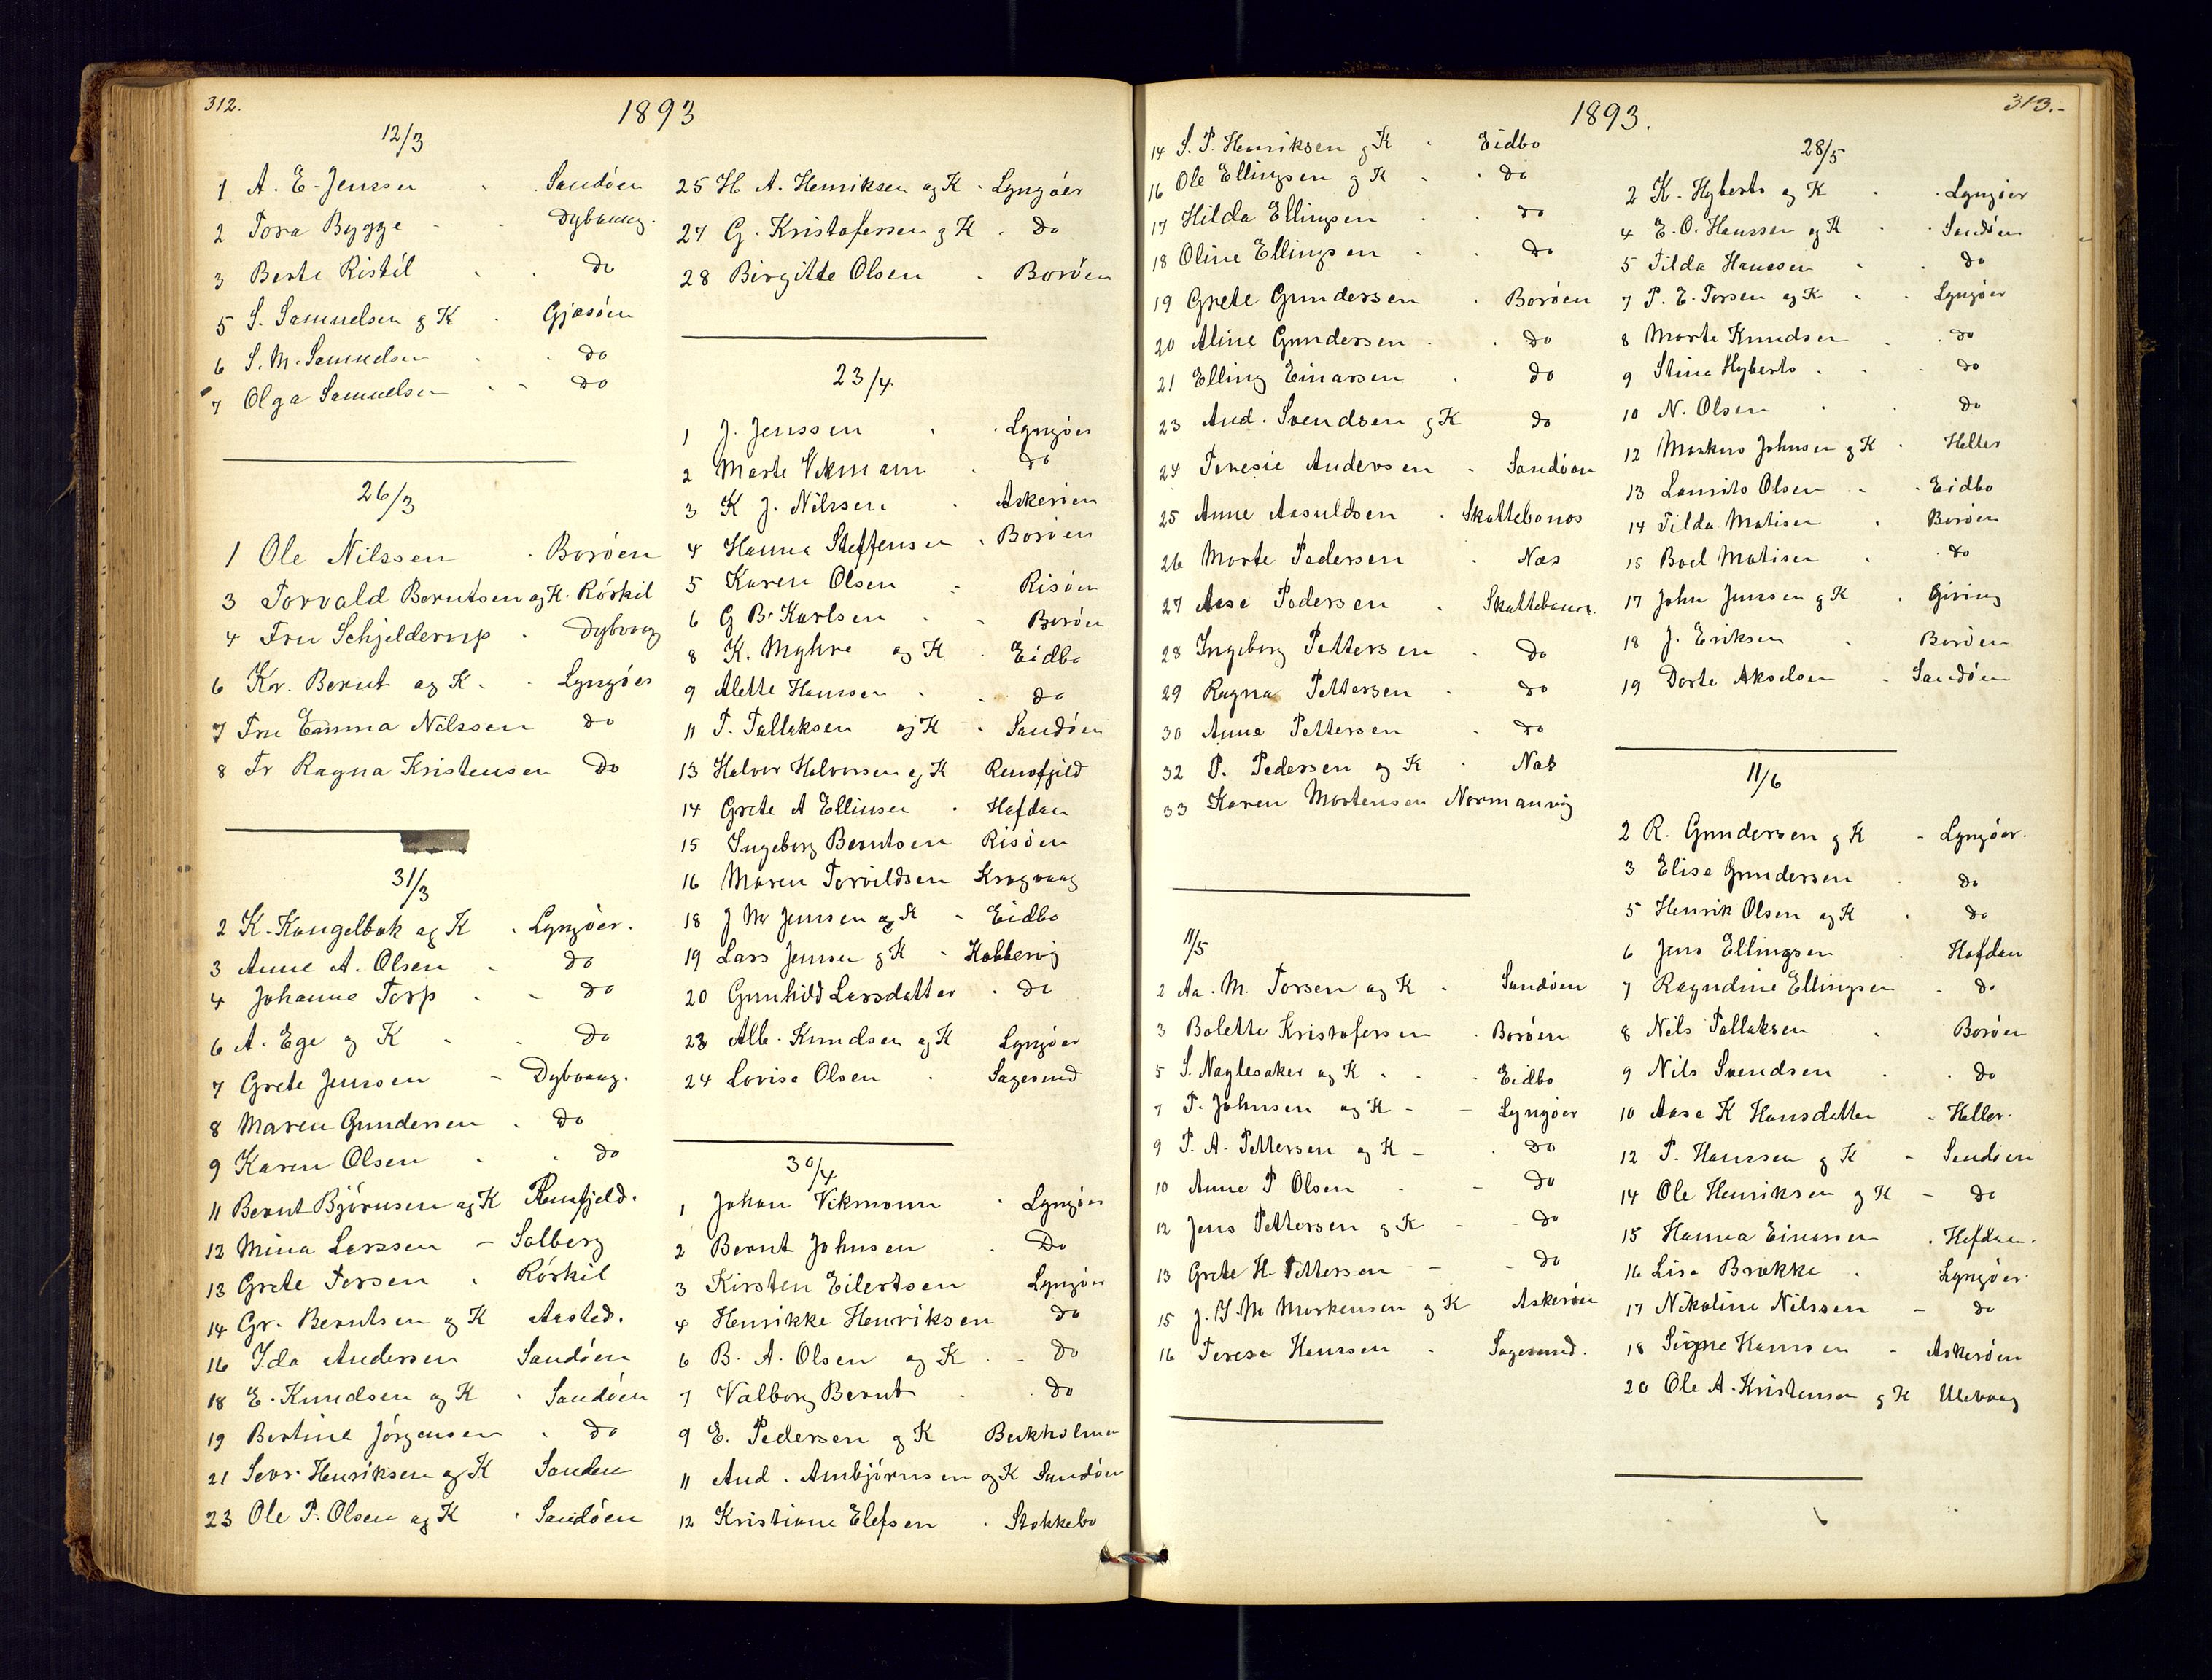 312.
1893
12/3
1 A. E. Jenssen Sandöen
2 Tora Bygge Dybvaag.
3 Berte Ristil do
5 S. Samuelsen og K Gjæsöen
6 S. M. Samuelsen do
7 Olga Samuelsen do
26/3
1 Ole Nilssen Boröen
3 Torvald Berntsen og K. Röskil
4 Fru Schjelderup Dybvaag
6 Kr. Bernt og K. Lyngöer
7 Fru Emma Nilssen do
8 Fr Ragna Kristensen Do
31/3
2 K. Kongelbak og K Lyngöer.
3 Anne A. Olsen do
4 Johanne Terp do
6 A. Ege og K do
7 Grete Jenssen Dybvaag.
8 Maren Gundersen do
9 Karen Olsen do
11 Bernt Björnsen og K Remfjeld.
12 Mina Larssen Solberg
13 Grete Torsen Röskil
14 Gr. Berntsen og K Aasted.
16 Ida Andersen Sandöen
18 E. Knudsen og K Sandöen
19 Bertine Jörgensen do
21 Sevr. Henriksen og K Sanden
23 Ole P. Olsen og K Sandöen
25 H A. Henriksen og K Lyngöer
27 G. Kristofersen og K do
28 Birgitte Olsen Boröen
23/4
1 J. Jenssen Lyngöer
2 Marte Vikmann do
3 K J. Nilssen Askeröen
4 Hanna Steffensen Boröen
5 Karen Olsen Risöen
6 G B. Karlsen Boröen
8 K. Myhre og K Eidbo
9 Alette Hanssen do
11 T. Tallaksen og K Sandöen
13 Halvor Halvorsen og K Remfjeld
14 Grete A Ellinsen Hafdan
15 Ingeborg Berntsen Risöen
16 Maren Torvildsen Kragvaag
18 J M Jenssen og K Eidbo
19 Lars Jensen og K Kabbervig
20 Gunhild Larsdatter do
23 Alb. Knudsen og K Lyngöer
24 Lovise Olsen Sagesund
30/4
1 Johan Vikmann Lyngöer
2 Bernt Johnsen Do
3 Kirsten Eilertsen Lyngöer
4 Henrikke Henriksen do
6 B. A. Olsen og K do
7 Valborg Bernt do
9 E. Pedersen og K Berkholmen
11 And. Ambjörnsen og K Sandöen
12 Kristiane Elefsen Stokkebo
313.-
1893.
14 S. P. Henriksen og K Eidbo
16 Ole Ellingsen og K do
17 Hilda Ellingsen do
18 Oline Ellingsen do
19 Grete Gundersen Boröen
20 Aline Gundersen do
21 Elling Einarsen do
23 And. Svendsen og K do
24 Teresie Andersen Sandöen
25 Anne Aasuldsen Skattebonos
26 Marte Pedersen Næs
27 Aase Pedersen Skattebonos
28 Ingeborg Pettersen do
29 Ragna Pettersen do
30 Anne Pettersen do
32 P. Pedersen og K Næs
33 Karen Mortensen Normanvig
11/5
2 Aa. M. Torsen og K Sandöen
3 Bolette Kristofersen Boröen
5 S. Naglesaker og K Eidbo
7 T. Johnsen og K Lyngöer
9 P. A. Pettersen og K do
10 Anne P. Olsen do
12 Jens Pettersen og K do
13 Grete H. Pettersen do
15 J. S. M Markensen og K Askeröen
16 Terese Hanssen Sagesund.
28/5
2 K. Hyberts og K Lyngöer
4 E. O. Hanssen og K Sandöen
5 Tilda Hanssen do
7 P. E. Torsen og K Lyngöer
8 Marte Knudsen do
9 Stina Hyberts do
10 N. Olsen do
12 Markus Johnsen og K Heller
13 Laurits Olsen Eidbo
14 Tilda Matisen Boröen
15 Boel Matisen do
17 John Jenssen og K Giving
18 J. Eriksen Boröen
19 Dorte Akselsen Sandöen
11/6
2 R. Gundersen og K Lyngöer.
3 Elise Gundersen do
5 Henrik Olsen og K do
6 Jens Ellingsen Hafdan
7 Ragndine Ellingsen do
8 Nils Tallaksen Boröen
9 Nils Svendsen do
10 Aase K Hansdatter Heller.
12 P. Hanssen og K Sandöen
14 Ole Henriksen og K do
15 Hanna Einarsen Hafdan.
16 Lise Brække Lyngöer.
17 Nikoline Nilssen do
18 Signe Hanssen Askeröen
20 Ole A. Kristensen og K Ulevaag